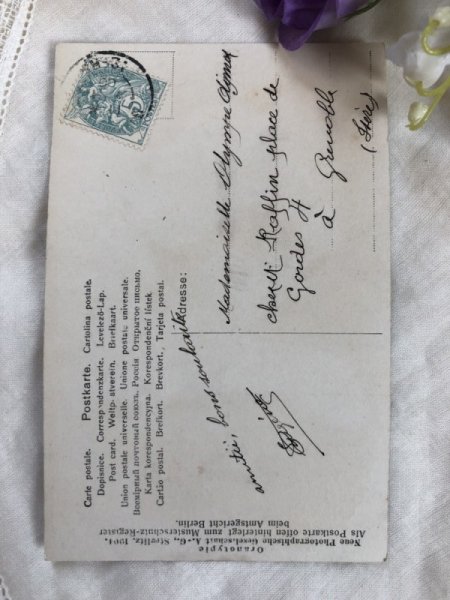 Carte postale. Postkarte. Cartolina postale.
Dopisnice. Correspondenzkarte. Levelező-Lap.
Post card. Weltpostverein. Briefkaart.
Union postale universelle. Unione postale universale.
Всемірный почтовый союзъ. Россія Открытое письмо.
Karta korespondencyjna. Korespondenční lístek
Cartão postal. Brefkort. Brevkort. Tarjeta postal.
Adresse:
Mademoiselle Olympe
chez Mr Raffin place de
Gordes 4
à Grenoble
(Isère)
amitié, bons souhaits
Oranotypie
Neue Photographische Gesellschaft A.-G., Steglitz, 1904.
Als Postkarte offen hinterlegt zum Musterschutz-Register
beim Amtsgericht Berlin.